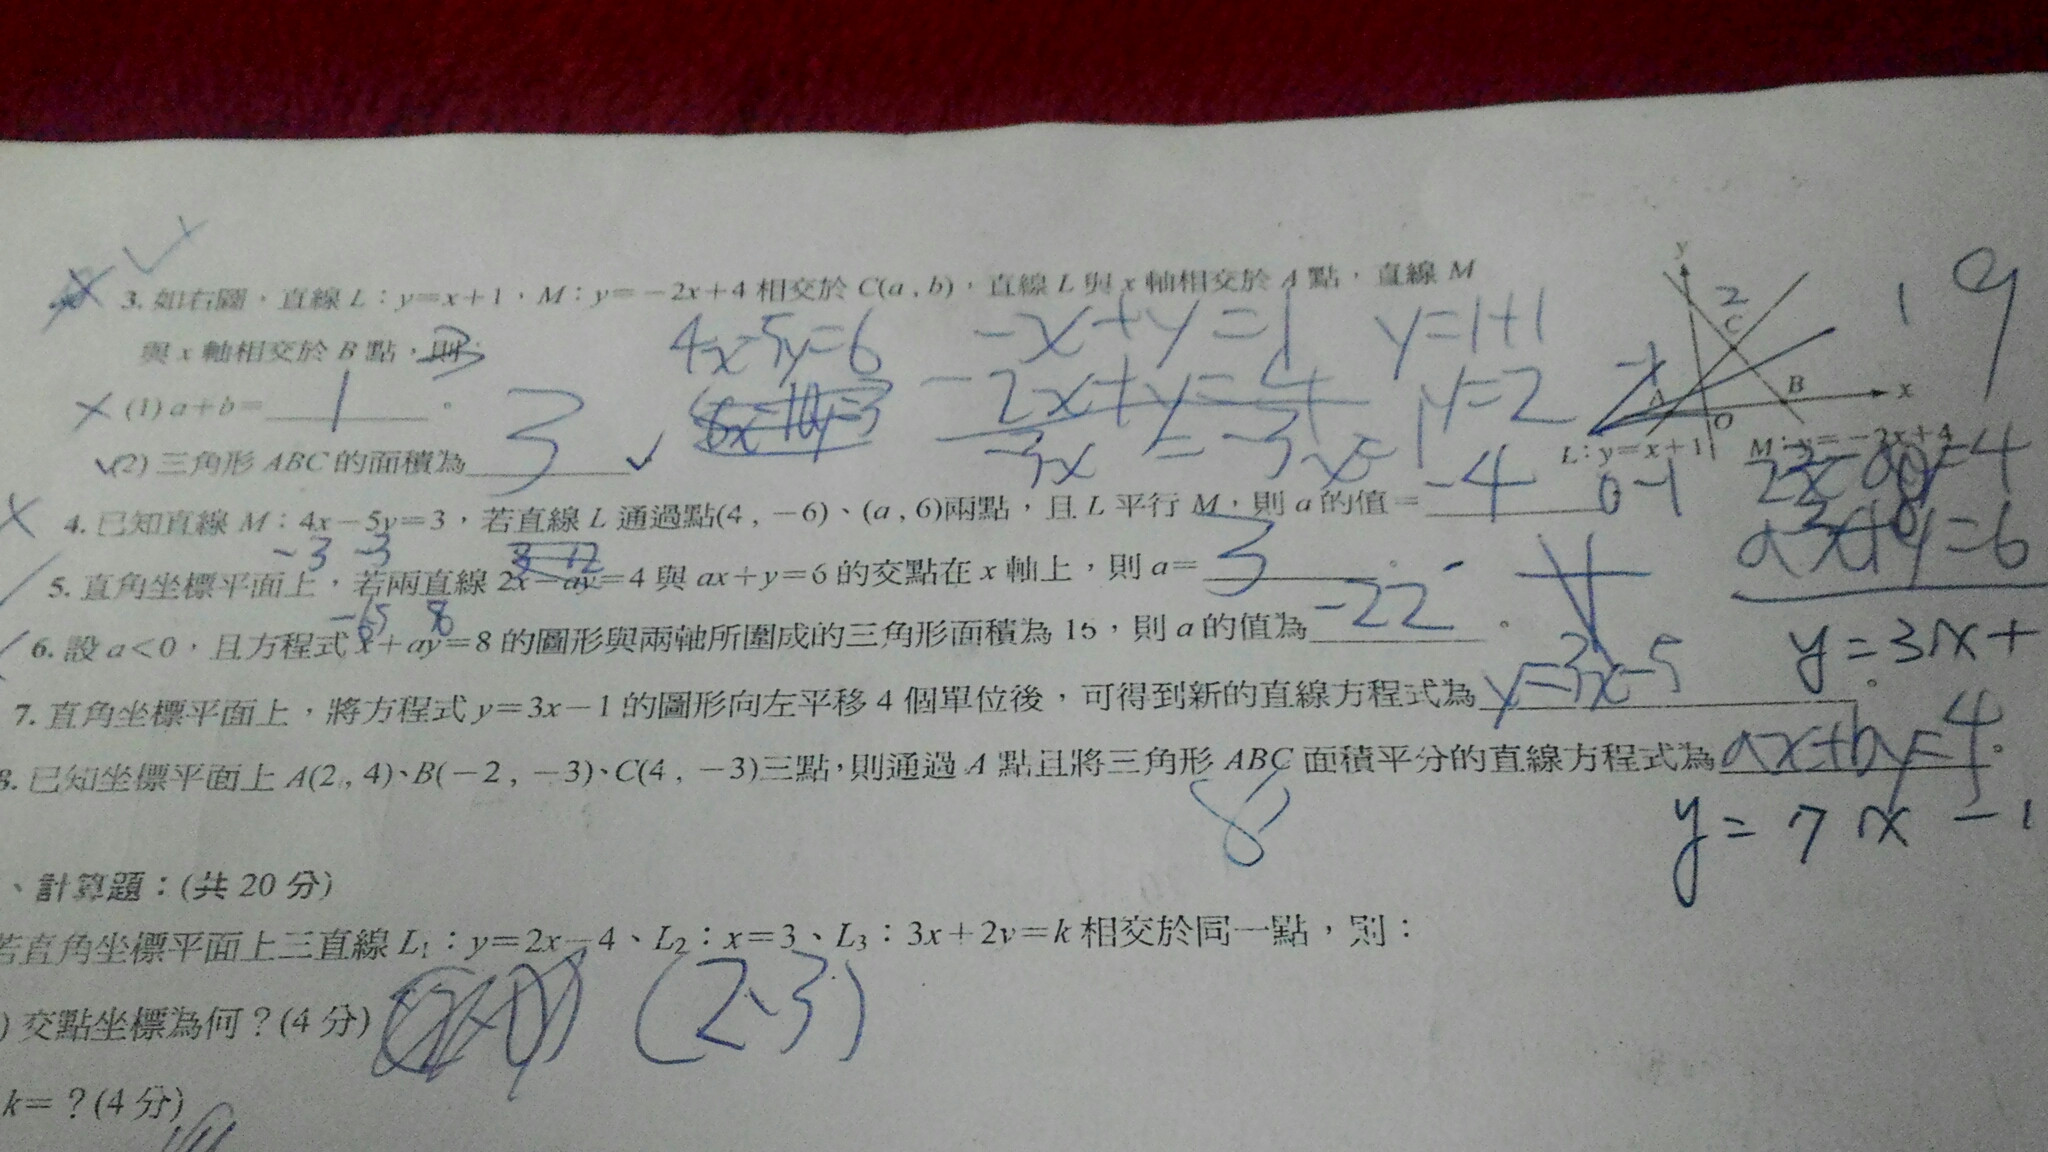 3. 如右圖，直線 L：y=x+1，M：y=-2x+4 相交於 C(a , b)，直線 L 與 x 軸相交於 A 點，直線 M
與 x 軸相交於 B 點，則：
4x-5y=6
-x+y=1
y=1+1
-2x+y=4
y=2
-3x=-3
x=1
(1) a+b= 1 。
(2) 三角形 ABC 的面積為 3
y
2
C
-1
A
B
x
O
L：y=x+1
M：y=-2x+4
1
9
4. 已知直線 M：4x-5y=3，若直線 L 通過點(4 , -6)、(a , 6)兩點，且 L 平行 M，則 a 的值= -4
0-1
-3 -3
5. 直角坐標平面上，若兩直線 2x-ay=4 與 ax+y=6 的交點在 x 軸上，則 a= 3 。
6. 設 a<0，且方程式 x+ay=8 的圖形與兩軸所圍成的三角形面積為 15，則 a 的值為 -22 。
y=3x+
7. 直角坐標平面上，將方程式 y=3x-1 的圖形向左平移 4 個單位後，可得到新的直線方程式為 y=3x-5 。
8. 已知坐標平面上 A(2 , 4)、B(-2 , -3)、C(4 , -3)三點，則通過 A 點且將三角形 ABC 面積平分的直線方程式為 ax+by=4 。
8
y=7x-1
、計算題：(共 20 分)
若直角坐標平面上三直線 L₁：y=2x-4、L₂：x=3、L₃：3x+2y=k 相交於同一點，則：
) 交點坐標為何？(4 分) (2、3)
k=？(4 分)